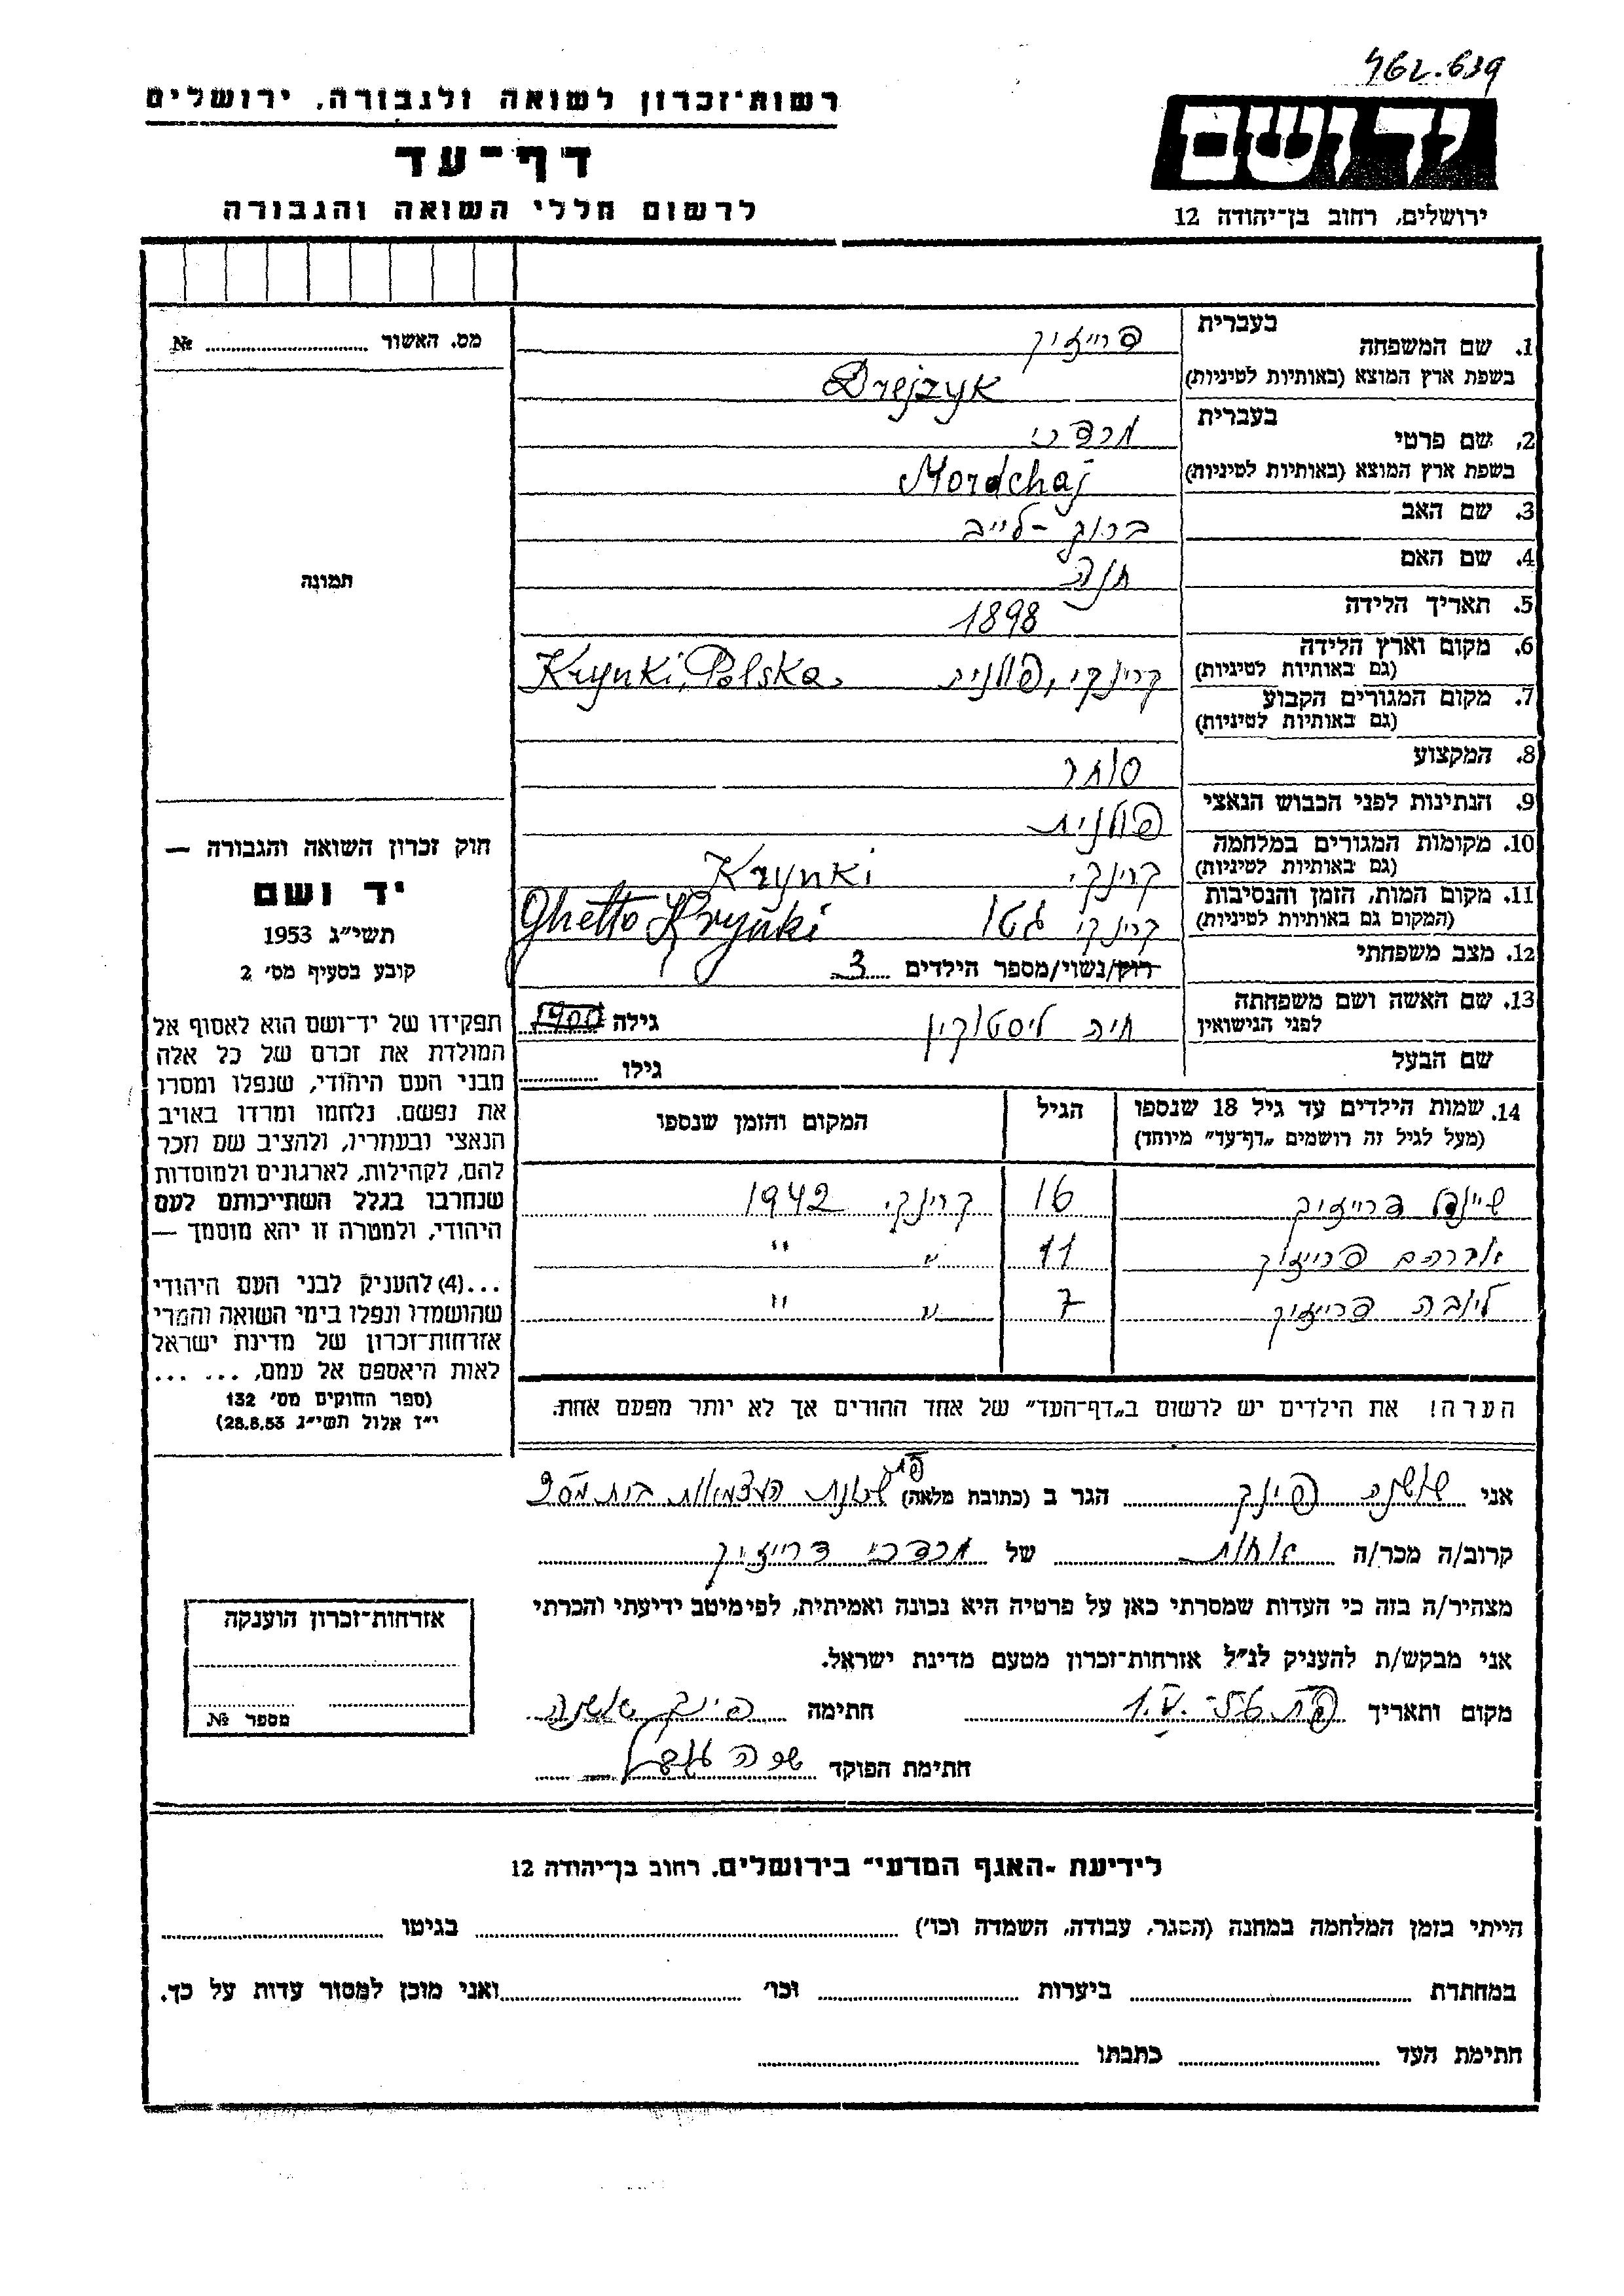 462.639
רשות־זכרון לשואה ולגבורה, ירושלים
ידושם
דף־עד
לרשום חללי השואה והגבורה
ירושלים, רחוב בן־יהודה 12
מס. האשור № 
בעברית
1. שם המשפחה דרייזיק
בשפת ארץ המוצא (באותיות לטיניות) Drejzyk
בעברית
2. שם פרטי מרדכי
בשפת ארץ המוצא (באותיות לטיניות) Mordchaj
3. שם האב ברוך-לייב
4. שם האם חנה
5. תאריך הלידה 1898
6. מקום וארץ הלידה
(גם באותיות לטיניות) קרינקי, פולנית Krynki, Polska.
7. מקום המגורים הקבוע
(גם באותיות לטיניות)
8. המקצוע סוחר
9. הנתינות לפני הכבוש הנאצי פולנית
10. מקומות המגורים במלחמה
(גם באותיות לטיניות) קרינקי Krynki
11. מקום המות, הזמן והנסיבות
(המקום גם באותיות לטיניות) קרינקי גטו Ghetto Krynki
12. מצב משפחתי רווק/נשוי/מספר הילדים 3
13. שם האשה ושם משפחתה
לפני הנישואין חיה ליסטוקין גילה 1900
שם הבעל גילו
תמונה
חוק זכרון השואה והגבורה —
יד ושם
תשי״ג 1953
קובע בסעיף מס׳ 2
תפקידו של יד־ושם הוא לאסוף אל
המולדת את זכרם של כל אלה
מבני העם היהודי, שנפלו ומסרו
את נפשם. נלחמו ומרדו באויב
הנאצי ובעוזריו, ולהציב שם וזכר
להם, לקהילות, לארגונים ולמוסדות
שנחרבו בגלל השתייכותם לעם
היהודי, ולמטרה זו יהא מוסמך —
...(4) להעניק לבני העם היהודי
שהושמדו ונפלו בימי השואה והמרי
אזרחות־זכרון של מדינת ישראל
לאות היאספם אל עמם, ... ...
(ספר החוקים מס׳ 132
י״ז אלול תשי״ג 28.8.53)
14. שמות הילדים עד גיל 18 שנספו
(מעל לגיל זה רושמים „דף־עד״ מיוחד) הגיל המקום והזמן שנספו
שיינדל דרייזיק 16 קרינקי 1942
אברהם דרייזיק 11 " "
ליובה דרייזיק 7 " "
הערה! את הילדים יש לרשום ב„דף־העד״ של אחד ההורים אך לא יותר מפעם אחת.
אני שושנה פינק הגר ב (כתובת מלאה) שכונת העצמאות בית מס 2
פ"ת
קרוב/ה מכר/ה אחות של מרדכי דרייזיק
מצהיר/ה בזה כי העדות שמסרתי כאן על פרטיה היא נכונה ואמיתית, לפי מיטב ידיעתי והכרתי
אני מבקש/ת להעניק לנ״ל אזרחות־זכרון מטעם מדינת ישראל.
מקום ותאריך פ"ת 1.V.-56 חתימה פינק שושנה
חתימת הפוקד
אזרחות־זכרון הוענקה
מספר №
לידיעת ״האגף המדעי״ בירושלים, רחוב בן־יהודה 12
הייתי בזמן המלחמה במחנה (הסגר, עבודה, השמדה וכו׳) בגיטו
במחתרת ביערות וכו׳ ואני מוכן למסור עדות על כך.
חתימת העד כתבתו